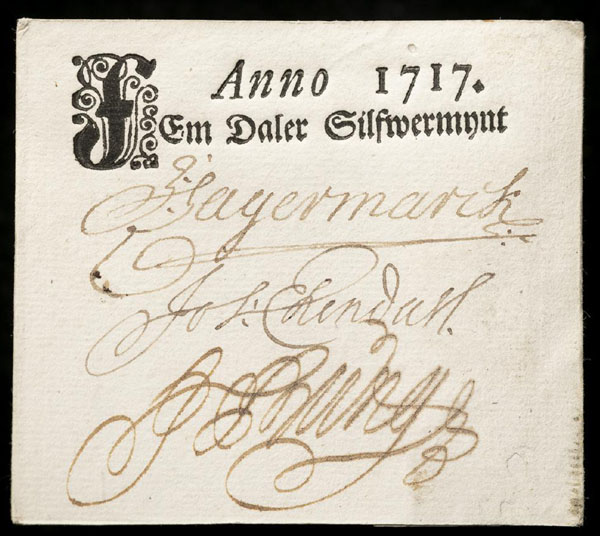 Anno 1717.
Fem Daler Silfwermynt
J: Hagermarck
Jos: Ekendahl.